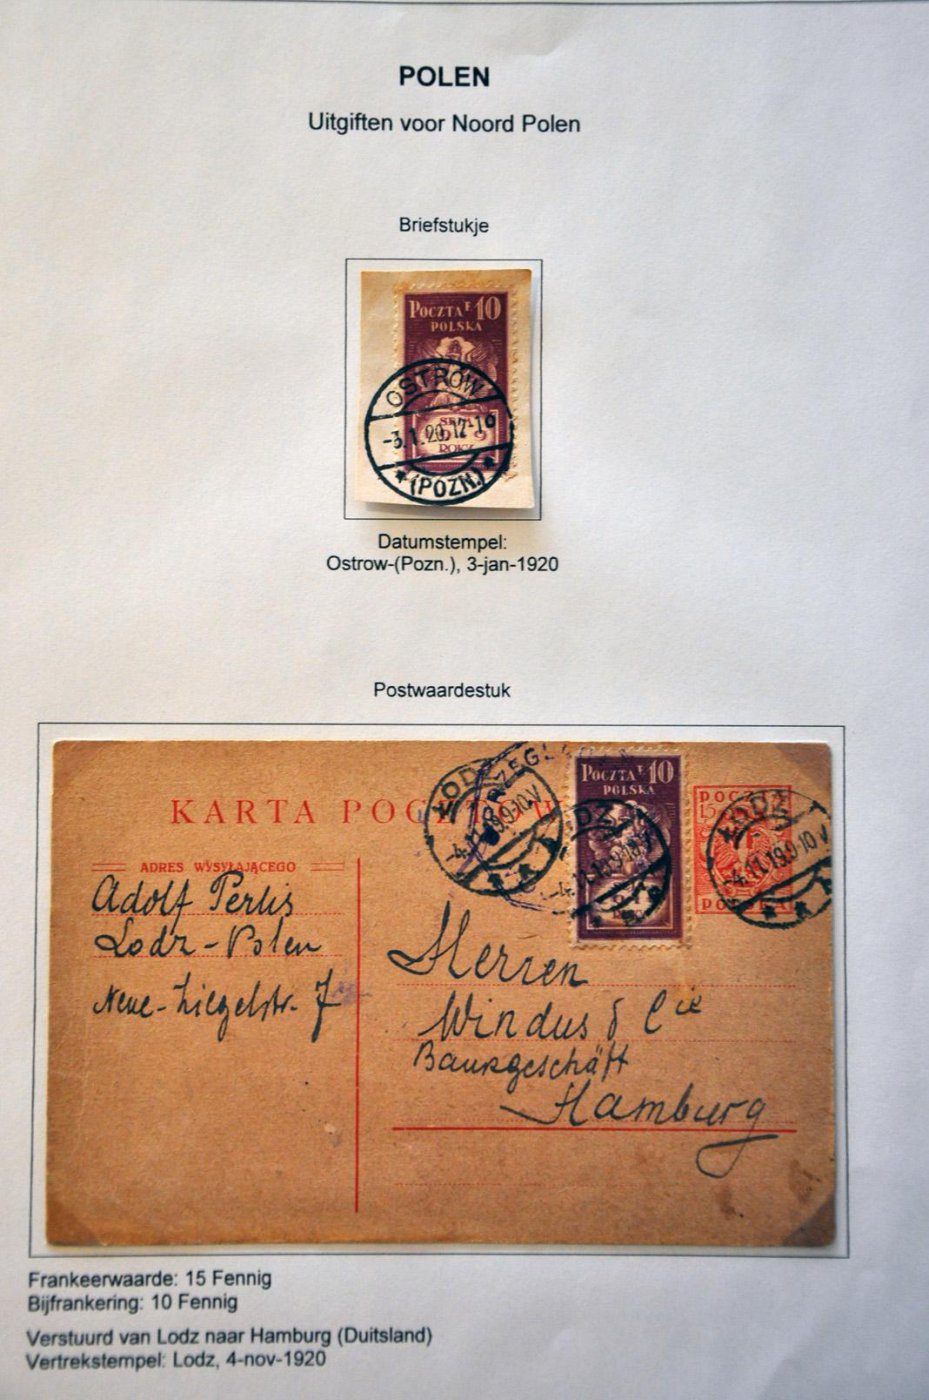 POLEN
Uitgiften voor Noord Polen
Briefstukje
POCZTA F. 10
POLSKA
OSTRÓW
-3.1.20.12-1
ROKU
★ (POZN.) ★
Datumstempel:
Ostrow-(Pozn.), 3-jan-1920
Postwaardestuk
KARTA POCZTOW
ŁÓDŹ
-4.11.19.9-10V
POCZTA F. 10
POLSKA
ŁÓDŹ
-4.11.19.9-10V
POCZTA
15
POLSKA
ŁÓDŹ
-4.11.19.9-10V
ADRES WYSYŁAJĄCEGO
Adolf Perlis
Lodz-Polen
Neue-Ziegelstr. 7
Herren
Windus & Cie
Bankgeschäft
Hamburg
Frankeerwaarde: 15 Fennig
Bijfrankering: 10 Fennig
Verstuurd van Lodz naar Hamburg (Duitsland)
Vertrekstempel: Lodz, 4-nov-1920